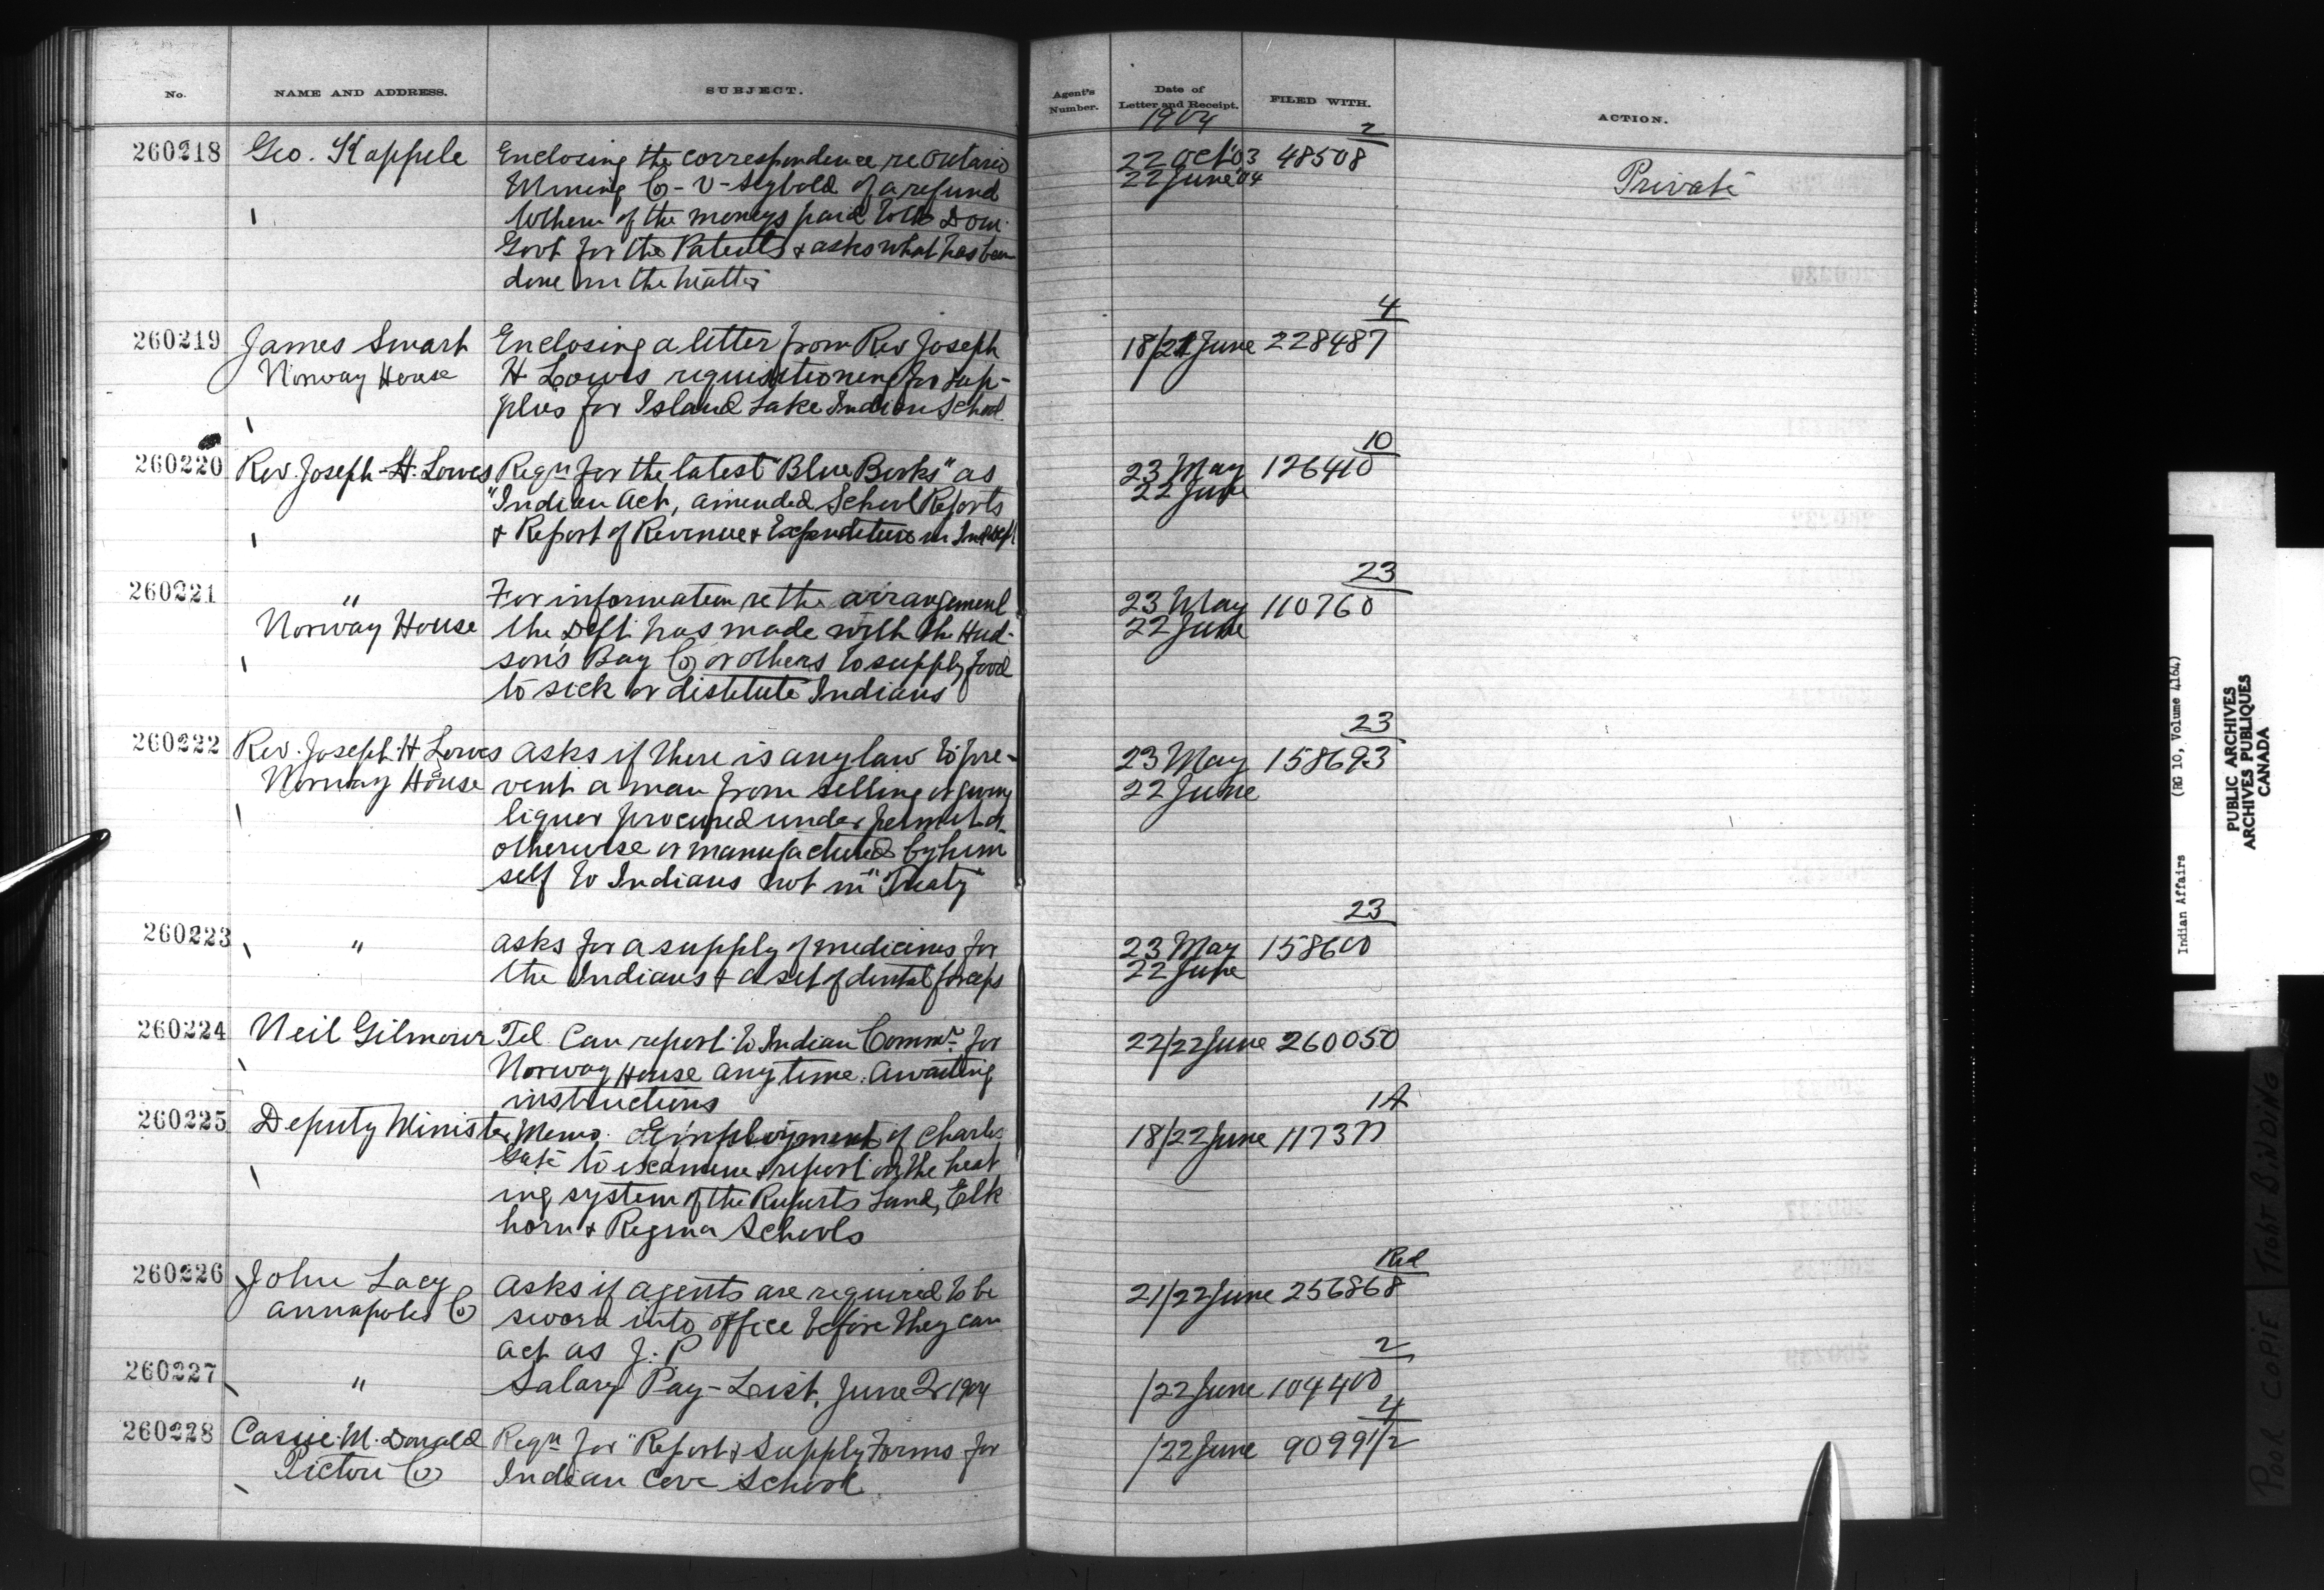 No. NAME AND ADDRESS. SUBJECT. Agent's Number. Date of Letter and Receipt. FILED WITH. ACTION.
1904
260218 Geo. Kappele Enclosing the correspondence re Ontario 22 Oct '03 2 48508 Private
Mining Co - v - Seybold of a refund 22 June '04
to them of the moneys paid to the Dom.
Govt for the Patents & asks what has been
done in the matter
260219 James Smart Enclosing a letter from Rev Joseph 18/21 June 4 228487
Norway House H Lowes requisitioning for sup-
plies for Island Lake Indian School
260220 Rev. Joseph H. Lowes Reqn for the latest "Blue Books" as 23 May 10 126410
"Indian Act, amended School Reports 22 June
& Report of Revenue & Expenditure in Ind Dept
260221 " For information re the arrangement 23 May 23 110760
Norway House the Dept. has made with the Hud- 22 June
son's Bay Co or others to supply food
to sick or distitute Indians
260222 Rev. Joseph H Lowes asks if there is any law to pre- 23 May 23 158693
Norway House vent a man from selling or giving 22 June
liquor procured under permit or
otherwise or manufactured by him
self to Indians not in "Treaty"
260223 " asks for a supply of medicines for 23 May 23 158600
the Indians & a set of dental forceps 22 June
260224 Neil Gilmour Tel. Can report to Indian Commr. for 22/22 June 260050
Norway House any time. Awaiting
instructions
260225 Deputy Minister Memo. Employment of Charles 18/22 June 1A
to examine & report on the heat
ing system of the Ruperts Land, Elk
horn & Regina Schools
260226 John Lacy Asks if agents are required to be 21/22 June Red 256868
Annapolis Co sworn into office before they can
act as J. P
260227 " Salary Pay-List, June 1904 /22 June 2 104400
260228 Cassie M. Donald Reqn for "Report & Supply Forms for /22 June 90991/2
Pictou Co Indian Cove School
Indian Affairs (RG 10, Volume 4164)
PUBLIC ARCHIVES
ARCHIVES PUBLIQUES
CANADA
POOR COPIE TIGHT BINDING